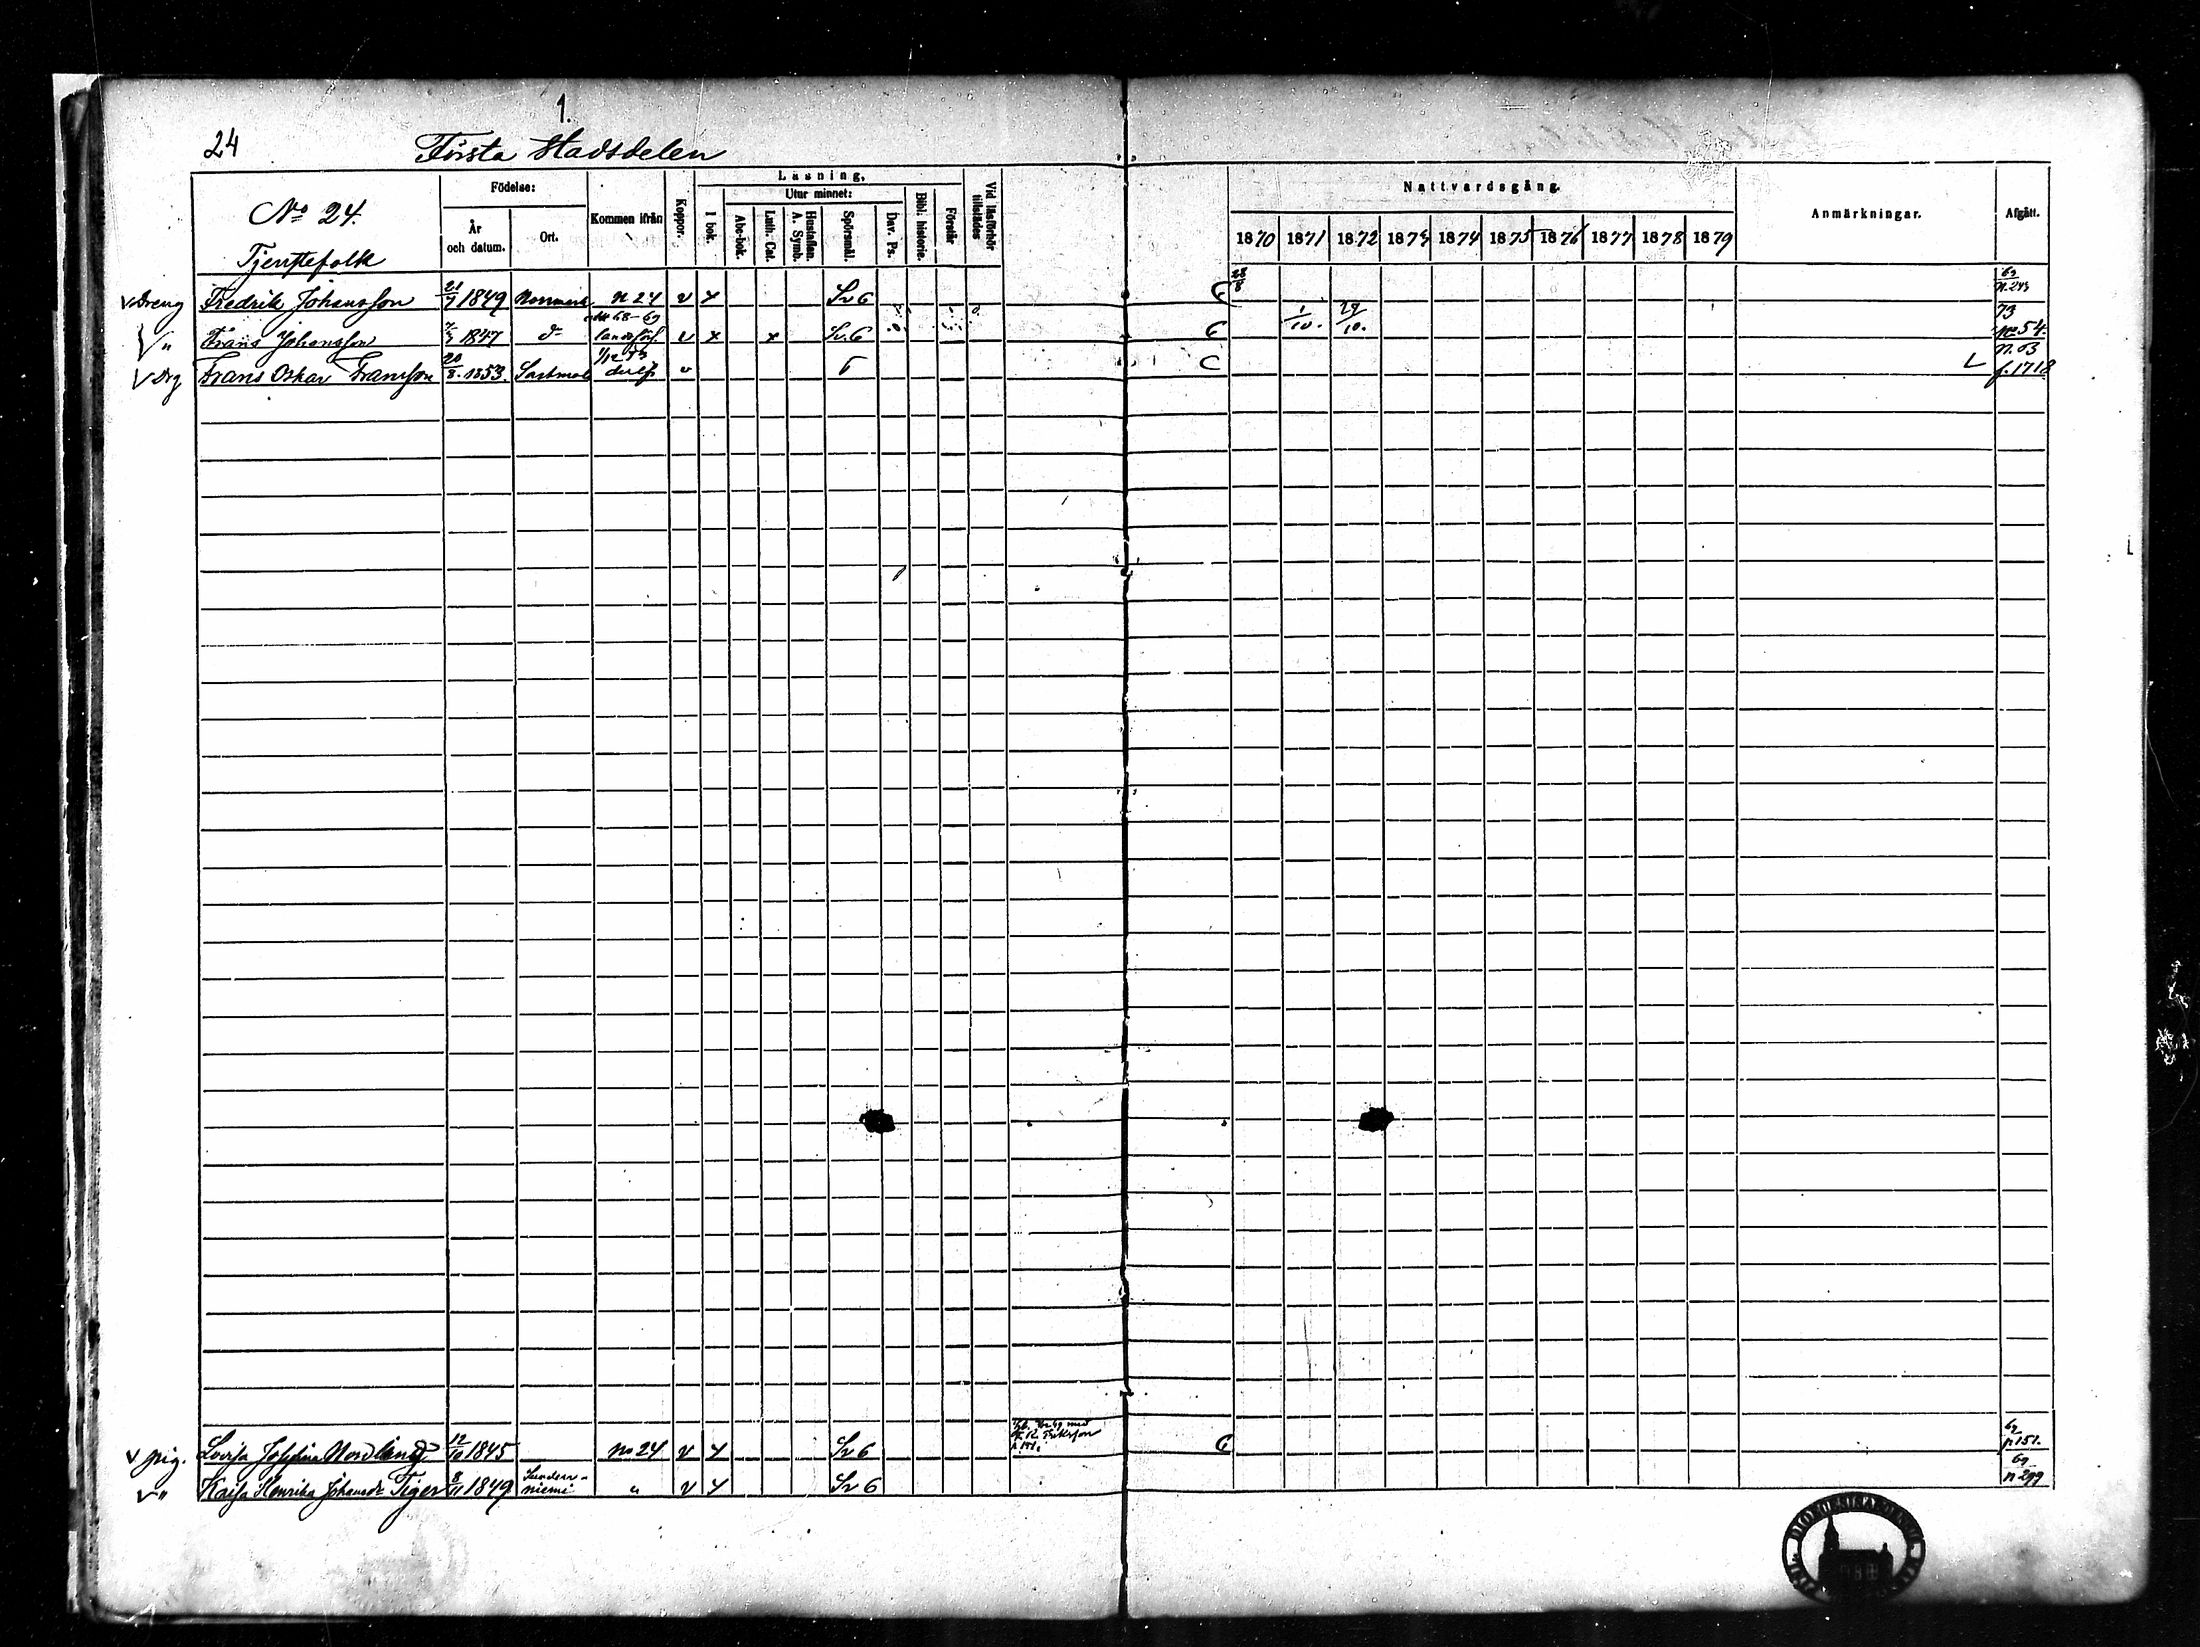 1.
24
Första Stadsdelen
Läsning.
Födelse:
Utur minnet:
Nattvardsgång.
No 24.
Tjenstefolk
År och datum.
Ort.
Kommen ifrån
Koppor.
I bok.
Abc-bok.
Luth. Cat.
Hustaflan. A. Symb.
Spörsmål.
Dav. Ps.
Bibl. historie.
Förstår
Vid läsförhör tillstädes
1870 1871 1872 1873 1874 1875 1876 1877 1878 1879
Anmärkningar.
Afgått.
Dreng Fredrik Johansson 21/7 1849 Norrmark n 24 v x Sv 6 C 28/8 69 n. 243
" Frans Johansson 7/3 1847 d:o att 68-69 landsförs. v x x Sv. 6 C 1/10. 29/10. 73 no 54.
drg Frans Oskar Fransson 20/8. 1853. Sastmola 1/12 73 v C n. 83 f. 1718
pig. Lovisa Josefina Nordlund 12/10 1845 no 24 v x Sv 6 Eriksson C 69 p 151.
" Kaisa Henrika Johansdr Tiger 8/11 1849 Sundenniemi " v x Sv 6 69 n 299